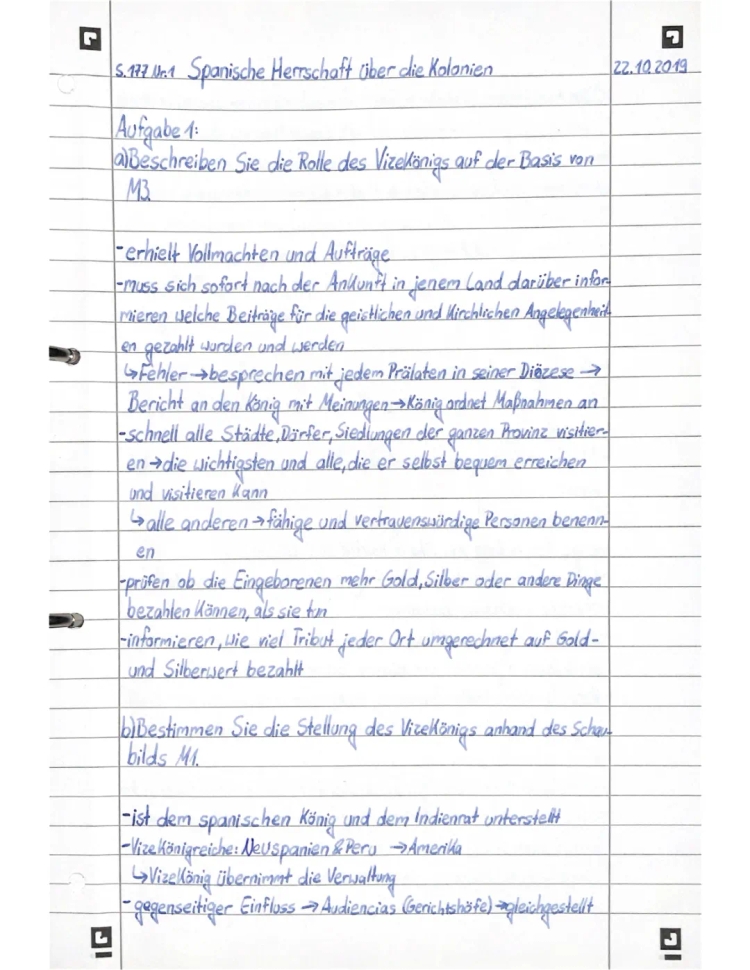 S.177 Nr.1 Spanische Herrschaft über die Kolonien 22.10.2019
Aufgabe 1:
a)Beschreiben Sie die Rolle des Vizekönigs auf der Basis von
M3.
-erhielt Vollmachten und Aufträge
-muss sich sofort nach der Ankunft in jenem Land darüber infor-
mieren welche Beiträge für die geistlichen und kirchlichen Angelegenheit-
en gezahlt wurden und werden
↳Fehler→besprechen mit jedem Prälaten in seiner Diözese →
Bericht an den König mit Meinungen→König ordnet Maßnahmen an
-schnell alle Städte,Dörfer,Siedlungen der ganzen Provinz visitier-
en→die wichtigsten und alle,die er selbst bequem erreichen
und visitieren kann
↳alle anderen→fähige und vertrauenswürdige Personen benenn-
en
-prüfen ob die Eingeborenen mehr Gold,Silber oder andere Dinge
bezahlen können,als sie tun
-informieren,wie viel Tribut jeder Ort umgerechnet auf Gold-
und Silberwert bezahlt
b)Bestimmen Sie die Stellung des Vizekönigs anhand des Schau-
bilds M1.
-ist dem spanischen König und dem Indienrat unterstellt
-Vizekönigreiche: Neuspanien & Peru →Amerika
↳Vizekönig übernimmt die Verwaltung
-gegenseitiger Einfluss→Audiencias (Gerichtshöfe)→gleichgestellt